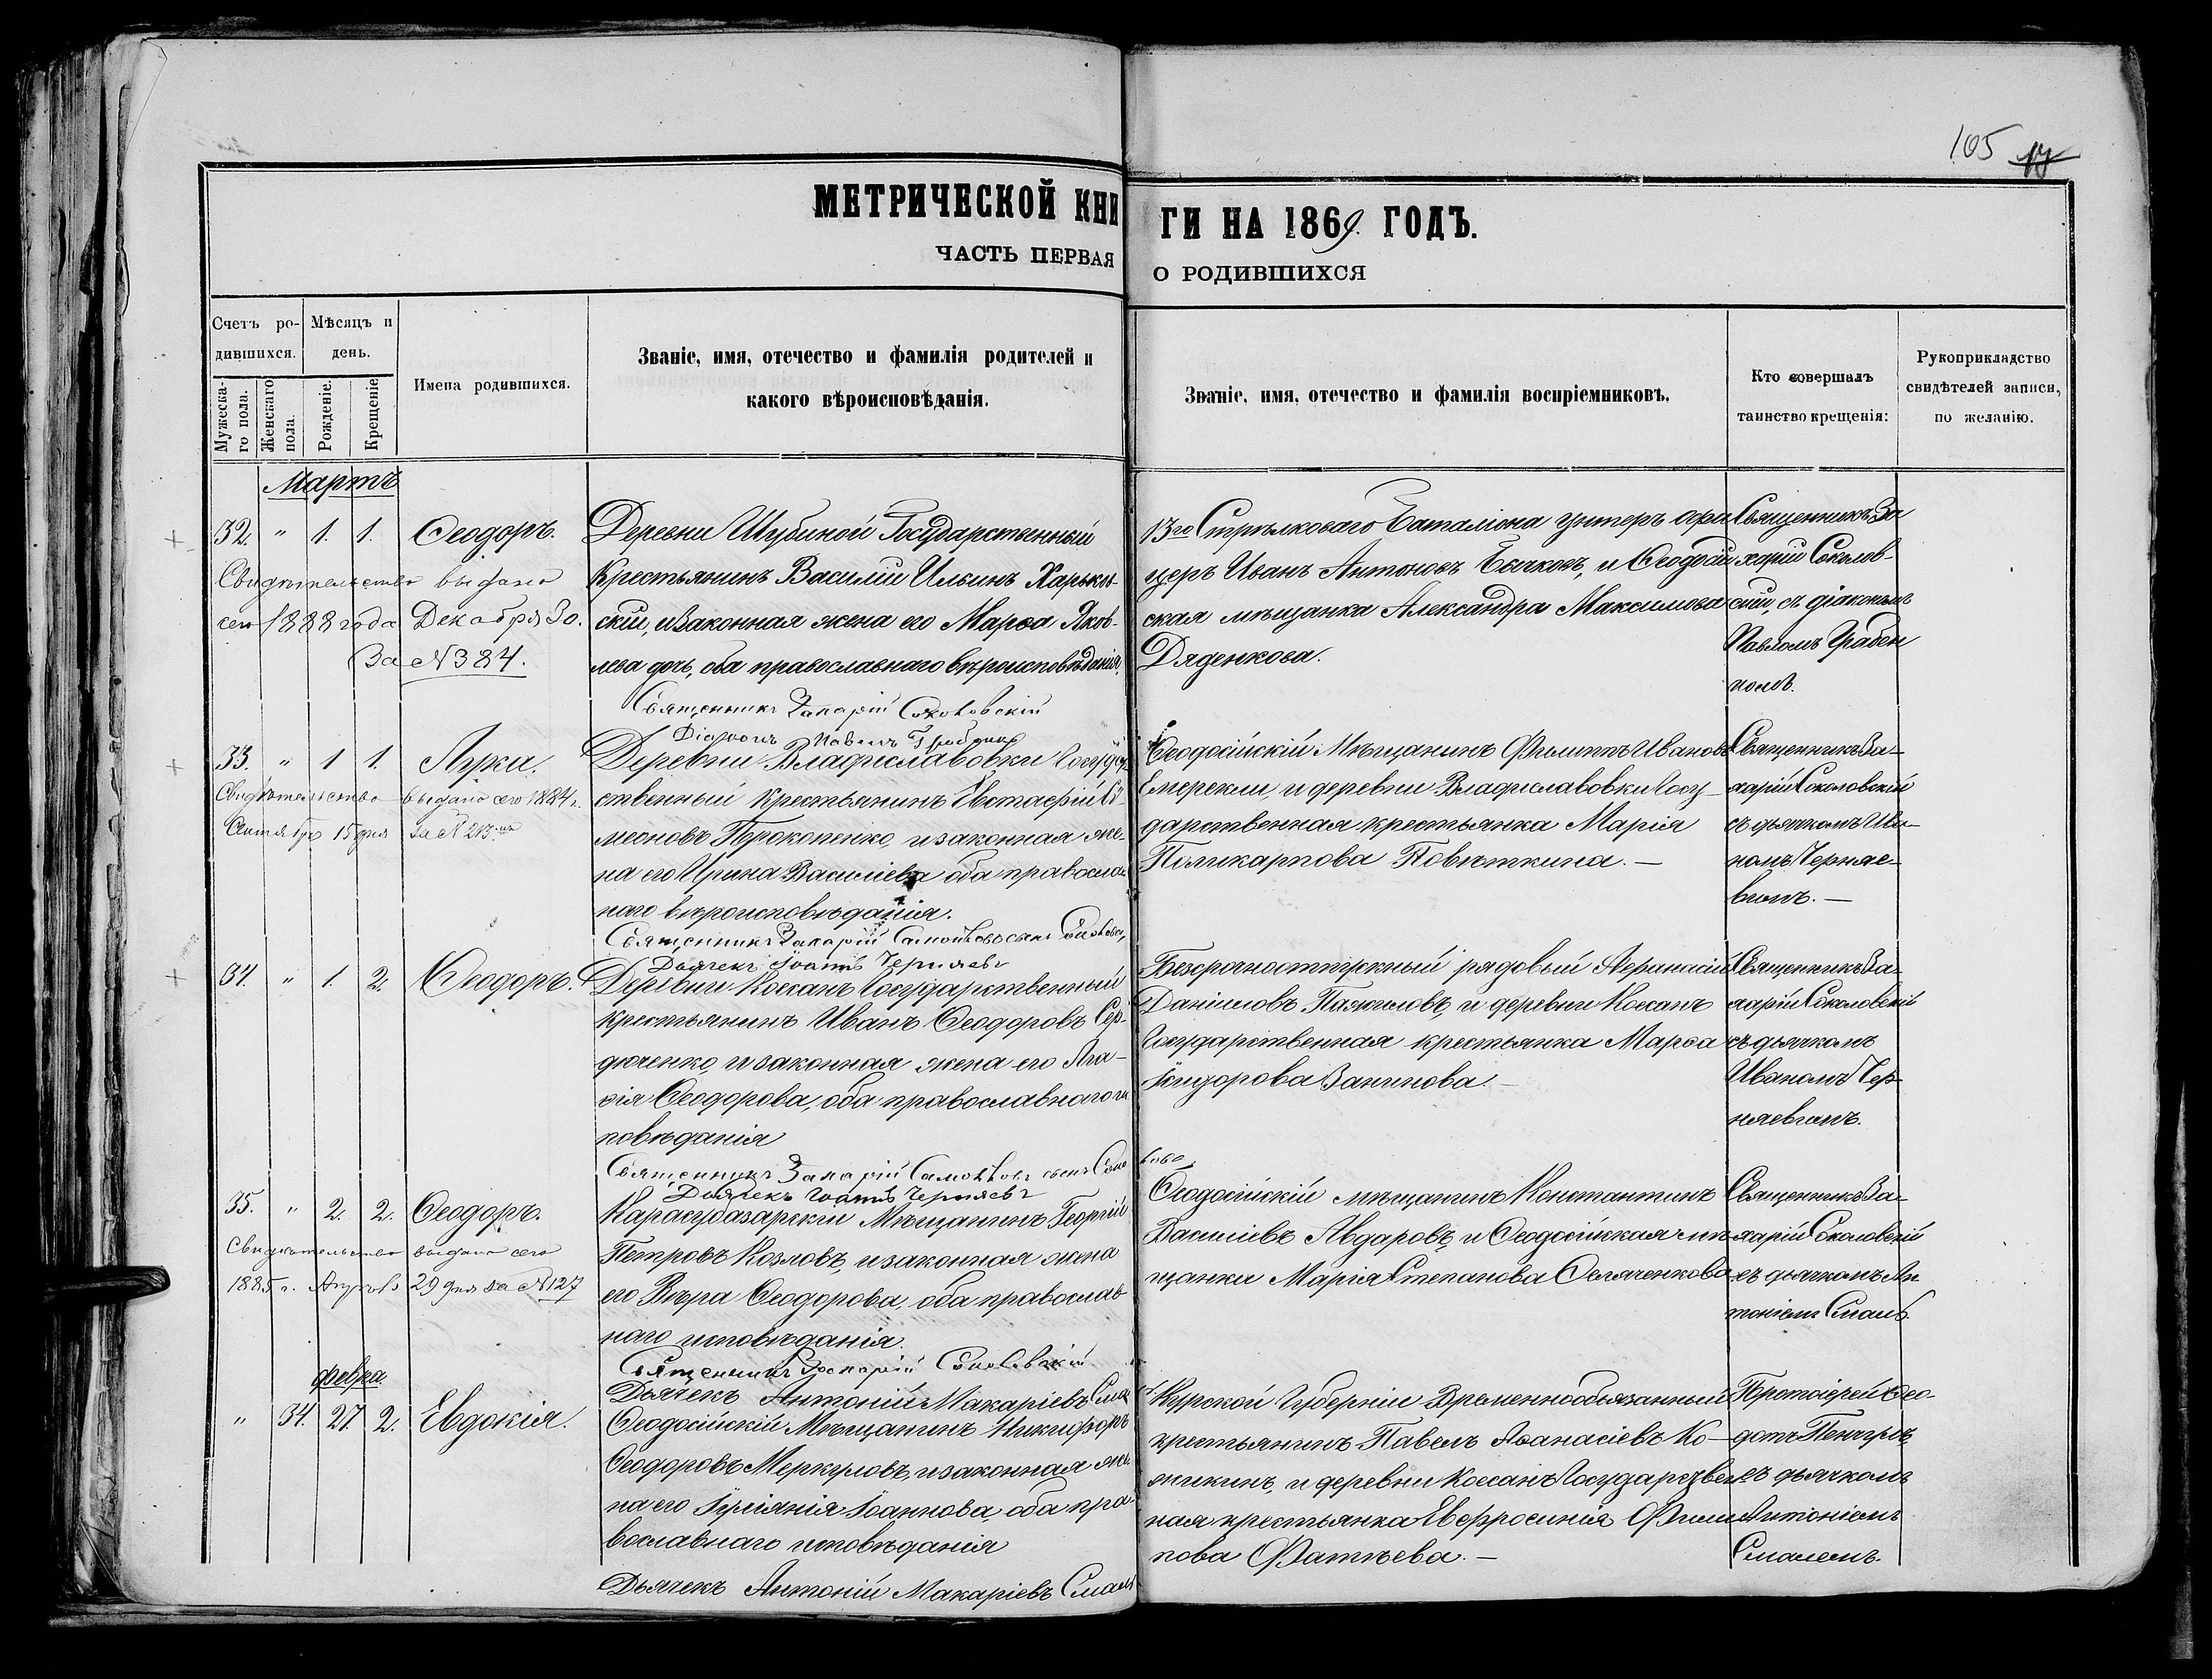 105 17
МЕТРИЧЕСКОЙ КНИ
ГИ НА 1869. ГОДЪ.
ЧАСТЬ ПЕРВАЯ
О РОДИВШИХСЯ
Счетъ ро-
дившихся.
Мужеска-
го пола.
Женскаго
пола.
Мѣсяцъ и
день.
Рожденіе.
Крещеніе
Имена родившихся.
Званіе, имя, отечество и фамилія родителей и
какого вѣроисповѣданія.
Званіе, имя, отечество и фамилія воспріемниковъ.
Кто совершалъ
таинство крещенія:
Рукоприкладство
свидѣтелей записи,
по желанію.
Мартъ
32. " 1. 1. Ѳеодоръ.
Свидѣтельство выдано
сего 1888 года Декабря 30.
За №384.
Деревни Шубиной Государственный
Крестьянинъ Василій Ильинъ Харьков-
скій, и законная жена его Марѳа Яков-
лева дочь, оба православнаго вѣроисповѣданія.
Священникъ Захарій Соколовскій
Діаконъ Павелъ
13го Стрѣлковаго Баталіона унтеръ офи
церъ Иванъ Антоновъ Бычковъ, и Ѳеодосій
ская мѣщанка Александра Максимова
Дяденкова.
Священникъ За
харій Соколов-
скій, съ діакономъ
Павломъ Грабен
комъ.
33. " 1 1. Лука.
Свидѣтельство выдано сего 1884 г.
Сентября 15 дня За №213.
Деревни Владиславовки Государ
ственный крестьянинъ Евстафій Си
меоновъ Прокопенко, и законная же-
на его Ирина Василіева оба православ
наго вѣроисповѣданія.
Священникъ Захарій Самойловъ сынъ
Дьячекъ Іоаннъ Черняевъ
Ѳеодосійскій Мѣщанинъ Филиппъ Ивановъ
Емерекли, и деревни Владиславовки Госу-
дарственная крестьянка Марія
Поликарпова Повѣткина.—
Священникъ За-
харій Соколовскій
съ дьячкомъ Ива-
номъ Черняе-
вымъ.—
34. " 1. 2. Ѳеодоръ.
Деревни Коссанъ Государственный
крестьянинъ Иванъ Ѳеодоровъ Сер-
дюченко, и законная жена его Ага-
ѳія Ѳеодорова, оба православнаго ис
повѣданія
Священникъ Захарій Самойловъ сынъ Соко
Дьячекъ Іоаннъ Черняевъ
Безсрочноотпускный рядовый Аѳанасій
Даніиловъ Пажиловъ, и деревни Коссанъ
Государственная крестьянка Марѳа
Ісидорова Заникова.—
Священникъ За-
харій Соколовскій
съ дьячкомъ
Иваномъ Чер-
няевымъ.
35. " 2. 2. Ѳеодоръ.
Свидѣтельство выдано сего
1885 г. 29 дня За №127
Карасубазарскій Мѣщанинъ Георгій
Петровъ Козловъ, и законная жена
его Вѣра Ѳеодорова, оба православ
наго исповѣданія.
Священникъ Захарій Соколовскій
Дьячекъ Антоній Макаріевъ
Ѳеодосійскій мѣщанинъ Константинъ
Василіевъ Авдаровъ, и Ѳеодосійская мѣ
щанка Марія Степанова Селяченкова
Священникъ За-
харій Соколовскій
съ дьячкомъ Ан
тоніемъ
Февра.
" 34. 27. 2. Евдокія.
Ѳеодосійскій Мѣщанинъ Никифоръ
Ѳеодоровъ Меркуловъ, и законная же-
на его Іуліянія Іоаннова, оба пра-
вославнаго исповѣданія
Дьячекъ Антоній Макаріевъ
Курской Губерніи Временнообязанный
крестьянинъ Павелъ Аѳанасіевъ Ко-
жикинъ, и деревни Коссанъ Государствен
ная крестьянка Евфросинія Филип
пова Фатѣева.—
Протоіерей Ѳео-
дотъ
съ дьячкомъ
Антоніемъ